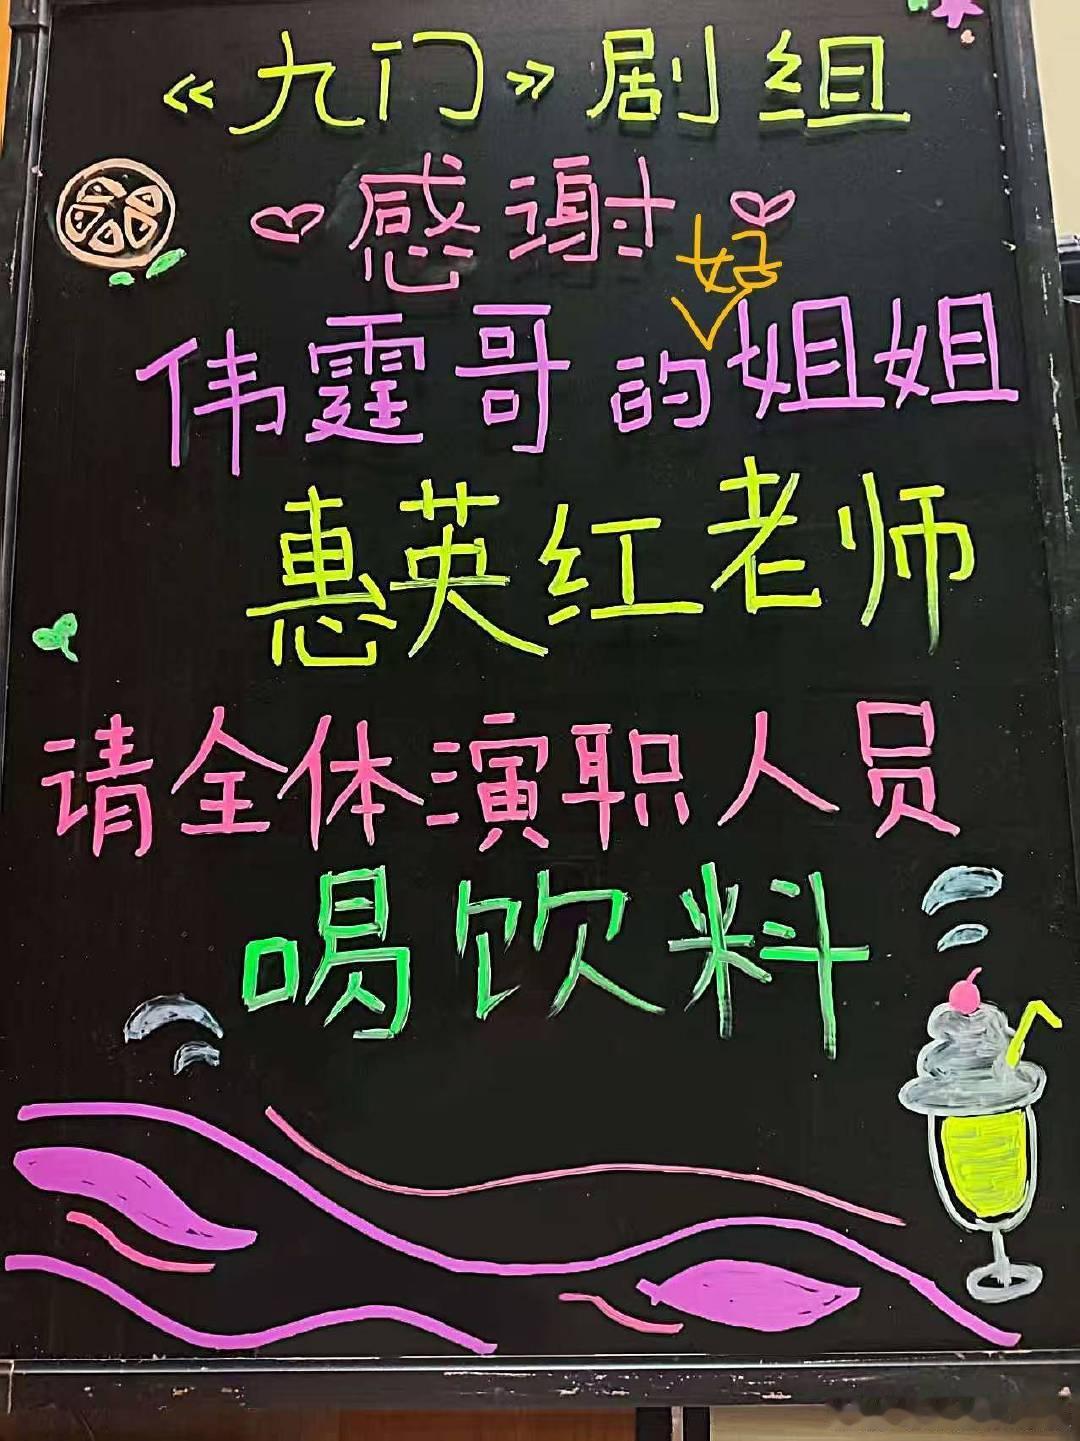 《九门》剧组
感谢
伟霆哥的好姐姐
惠英红老师
请全体演职人员
喝饮料